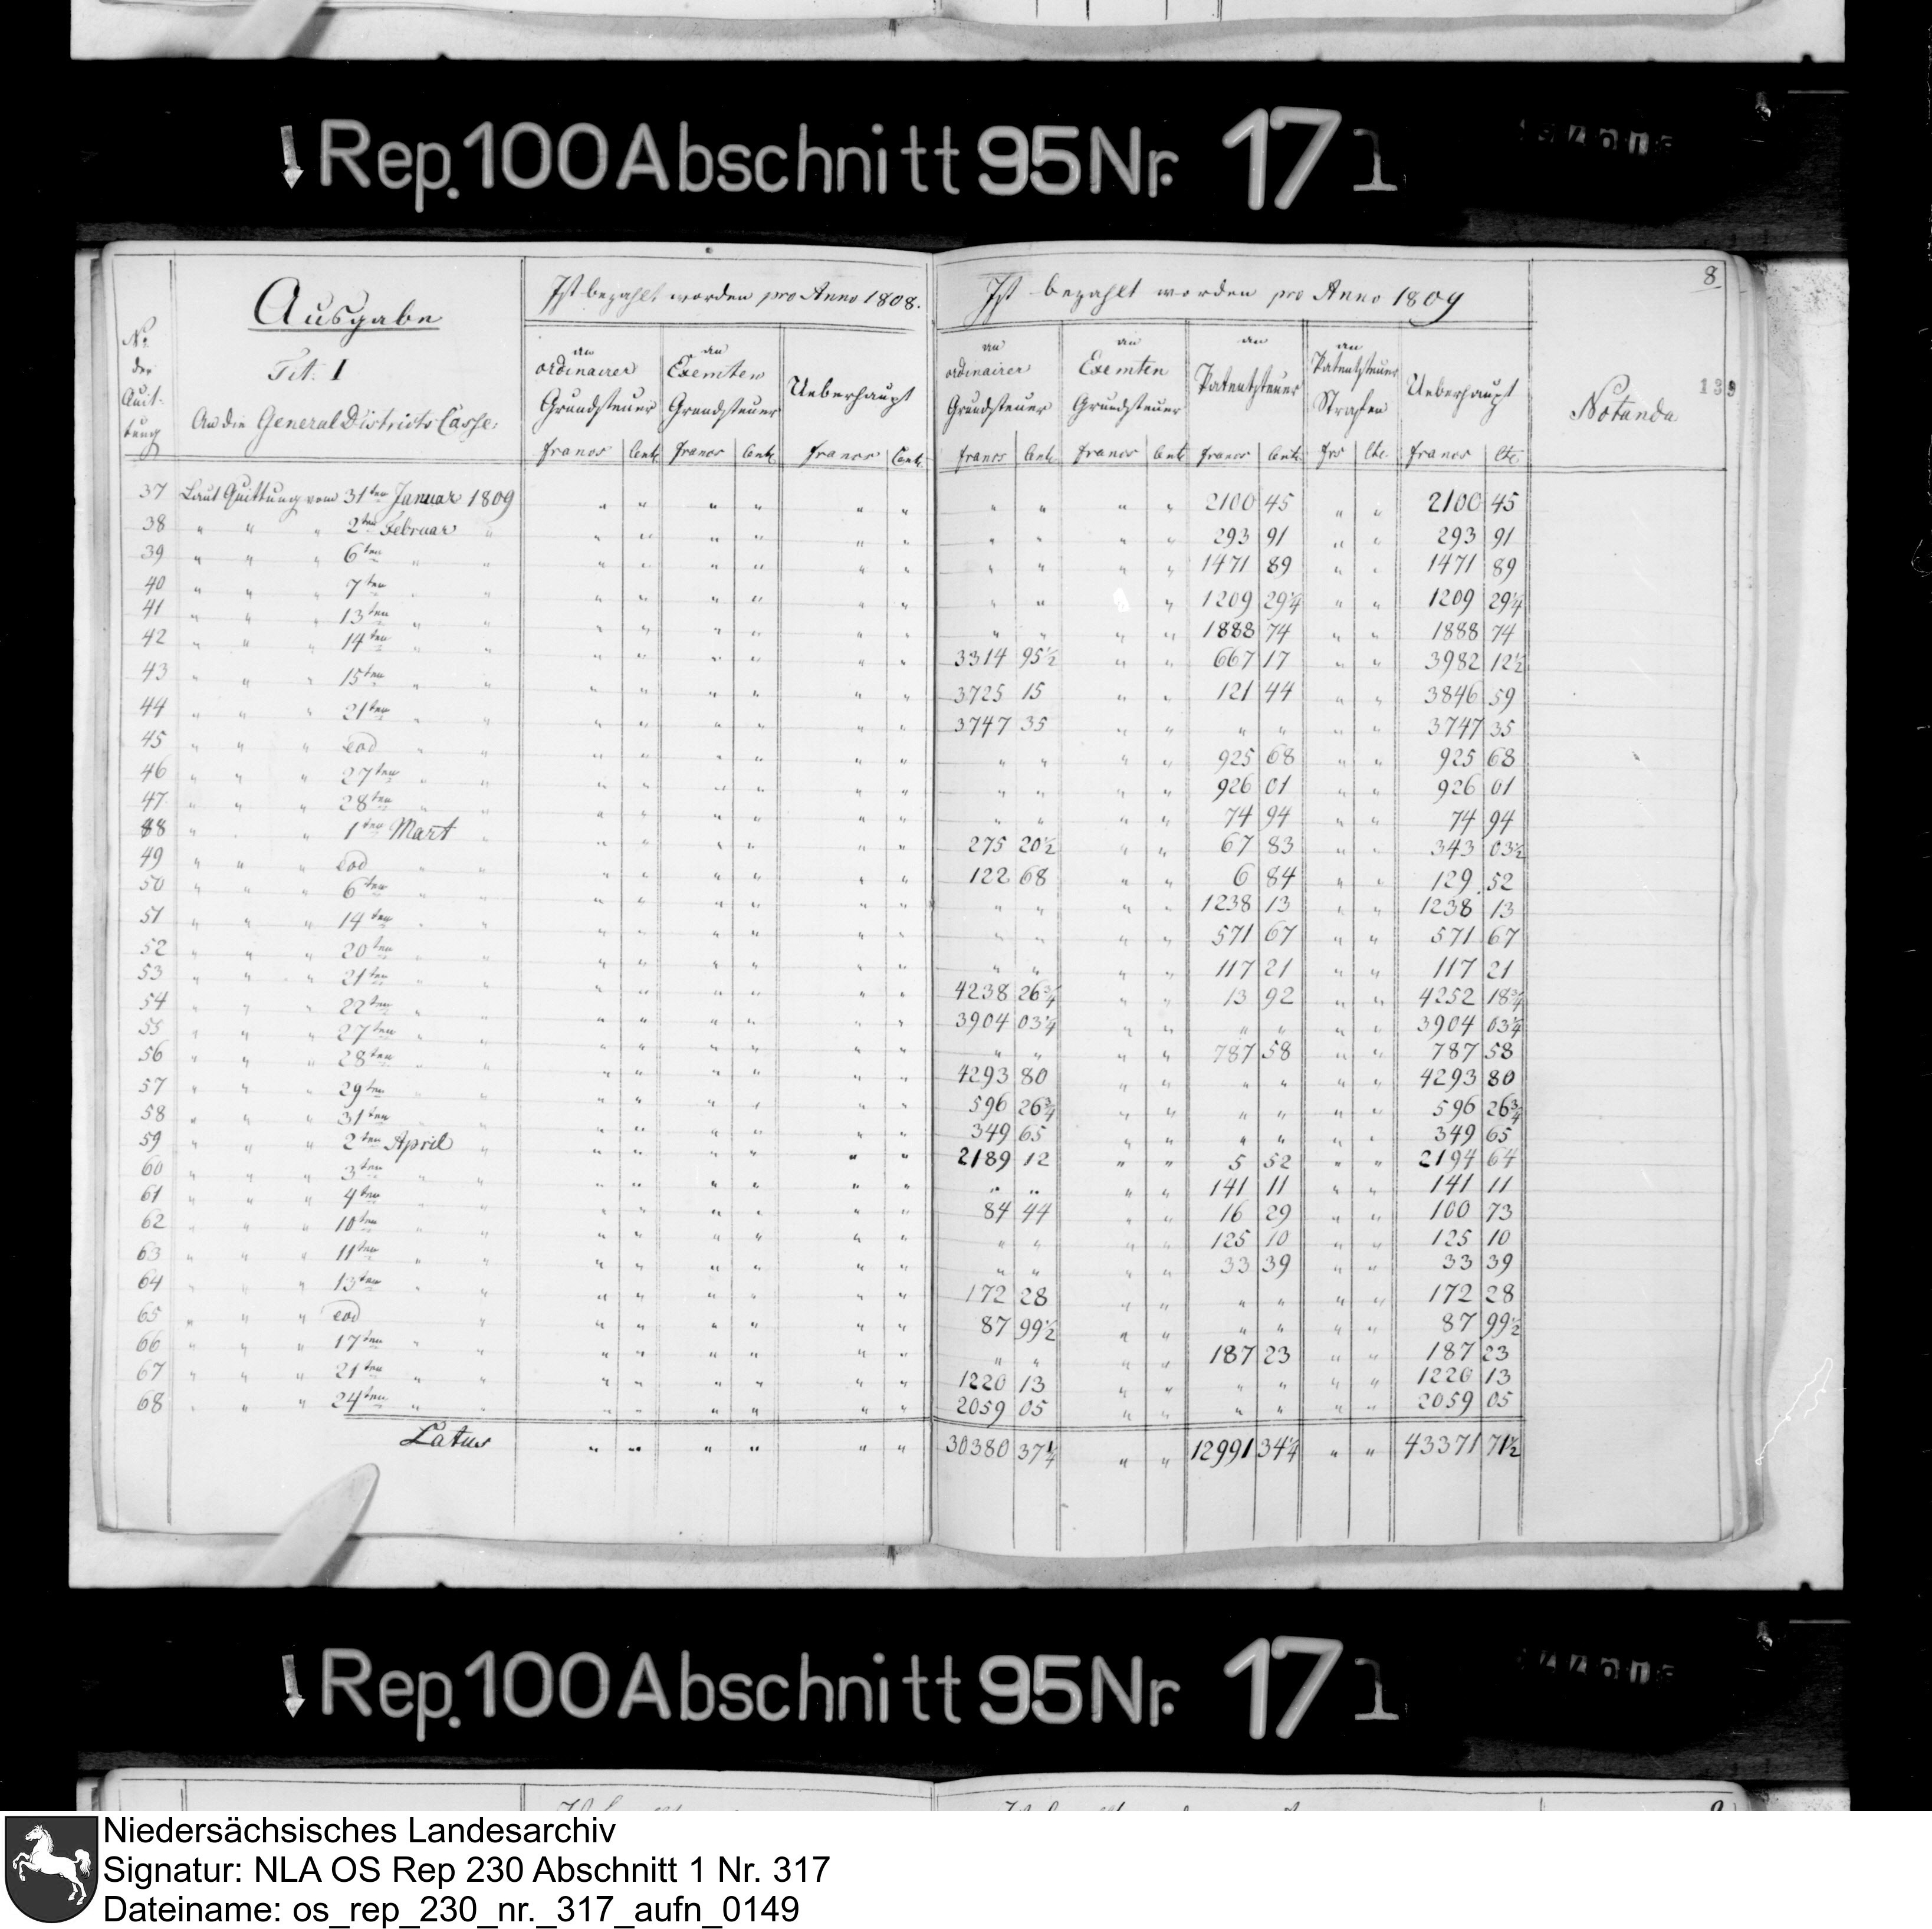 ↓ Rep. 100 Abschnitt 95 Nr. 171
8
139
Ausgabe
Tit: I
An die General Districts Casse,
No. der Quit-tung
Ist bezahlt worden pro Anno 1808.
an ordinairer Grundsteuer | an Exemten Grundsteuer | Ueberhaupt
francs | Cent. | francs | Cent. | francs | Cent.
Ist bezahlt worden pro Anno 1809
an ordinairer Grundsteuer | an Exemten Grundsteuer | an Patentsteuer | an Patentsteuer Strafen | Ueberhaupt | Notanda
francs | Cent. | francs | Cent. | francs | Cent. | frs | Cte. | francs | Cte.
37 Laut Quittung vom 31ten Januar 1809 " " " " " " " " " " 2100 45 " " 2100 45
38 " " " 2ten Februar " " " " " " " " " " " 293 91 " " 293 91
39 " " " 6ten " " " " " " " " " " " " 1471 89 " " 1471 89
40 " " " 7ten " " " " " " " " " " " 1209 29¼ " " 1209 29¼
41 " " " 13ten " " " " " " " " " " " " 1888 74 " " 1888 74
42 " " " 14ten " " " " " " " " 3314 95½ " " 667 17 " " 3982 12½
43 " " " 15ten " " " " " " " " 3725 15 " " 121 44 " " 3846 59
44 " " " 21ten " " " " " " " " 3747 35 " " " " " " 3747 35
45 " " " eod " " " " " " " " " " " " 925 68 " " 925 68
46 " " " 27ten " " " " " " " " " " " " 926 01 " " 926 01
47 " " " 28ten " " " " " " " " " " " " 74 94 " " 74 94
48 " " " 1ten Mart " " " " " " " 275 20½ " " 67 83 " " 343 03½
49 " " " eod " " " " " " " " 122 68 " " 6 84 " " 129 52
50 " " " 6ten " " " " " " " " " " " " 1238 13 " " 1238 13
51 " " " 14ten " " " " " " " " " " " " 571 67 " " 571 67
52 " " " 20ten " " " " " " " " " " " " 117 21 " " 117 21
53 " " " 21ten " " " " " " " " 4238 26¾ " " 13 92 " " 4252 18¾
54 " " " 22ten " " " " " " " " 3904 03¼ " " " " " " 3904 03¼
55 " " " 27ten " " " " " " " " " " " " 787 58 " " 787 58
56 " " " 28ten " " " " " " " " 4293 80 " " " " " " 4293 80
57 " " " 29ten " " " " " " " " 596 26¾ " " " " " " 596 26¾
58 " " " 31ten " " " " " " " " 349 65 " " " " " " 349 65
59 " " " 2ten April " " " " " " " 2189 12 " " 5 52 " " 2194 64
60 " " " 3ten " " " " " " " " " " " " 141 11 " " 141 11
61 " " " 4ten " " " " " " " " 84 44 " " 16 29 " " 100 73
62 " " " 10ten " " " " " " " " " " " " 125 10 " " 125 10
63 " " " 11ten " " " " " " " " " " " " 33 39 " " 33 39
64 " " " 13ten " " " " " " " " 172 28 " " " " " " 172 28
65 " " " eod " " " " " " " 87 99½ " " " " " " 87 99½
66 " " " 17ten " " " " " " " " " " " " 187 23 " " 187 23
67 " " " 21ten " " " " " " " " 1220 13 " " " " " " 1220 13
68 " " " 24ten " " " " " " " " 2059 05 " " " " " " 2059 05
Latus " " " " " " 30380 37¼ " " 12991 34¼ " " 43371 71½
↓ Rep. 100 Abschnitt 95 Nr. 171
Niedersächsisches Landesarchiv
Signatur: NLA OS Rep 230 Abschnitt 1 Nr. 317
Dateiname: os_rep_230_nr._317_aufn_0149